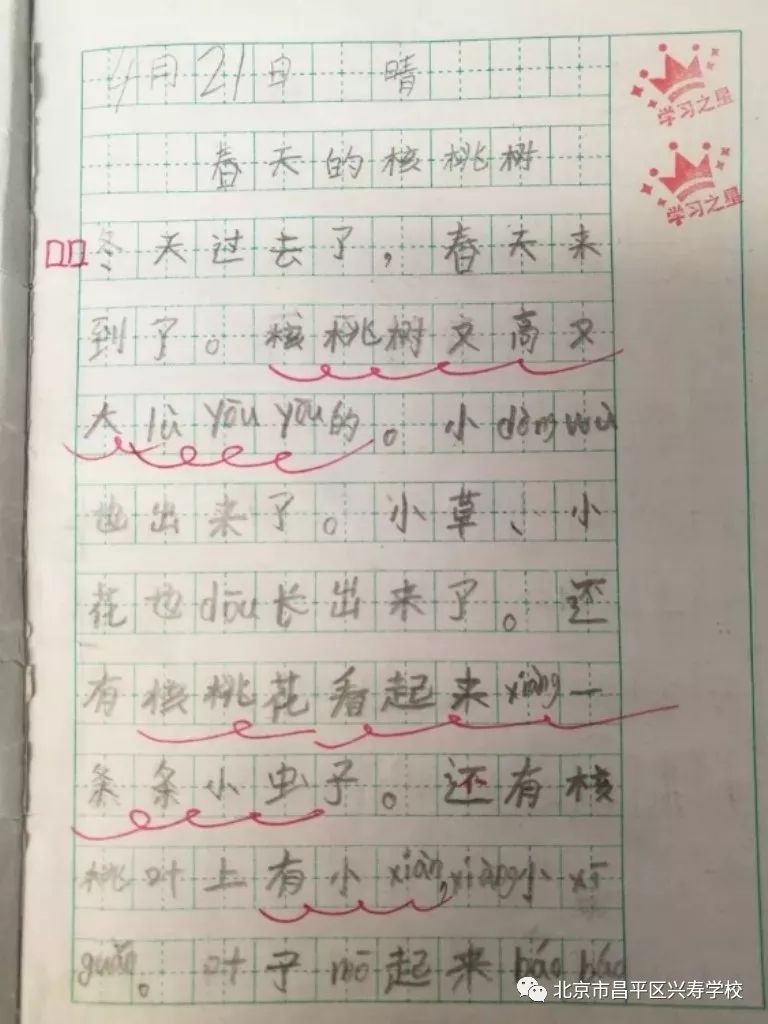 4月21日 晴
学习之星
春天的核桃树
学习之星
冬天过去了,春天来
到了。核桃树又高又
大lǜ yōu yōu的。小dòng wù
也出来了。小草、小
花也dōu长出来了。还
有核桃花看起来xiàng一
条条小虫子。还有核
桃叶上有小xiàn,xiàng小xī
guǎn。叶子mō起来
北京市昌平区兴寿学校